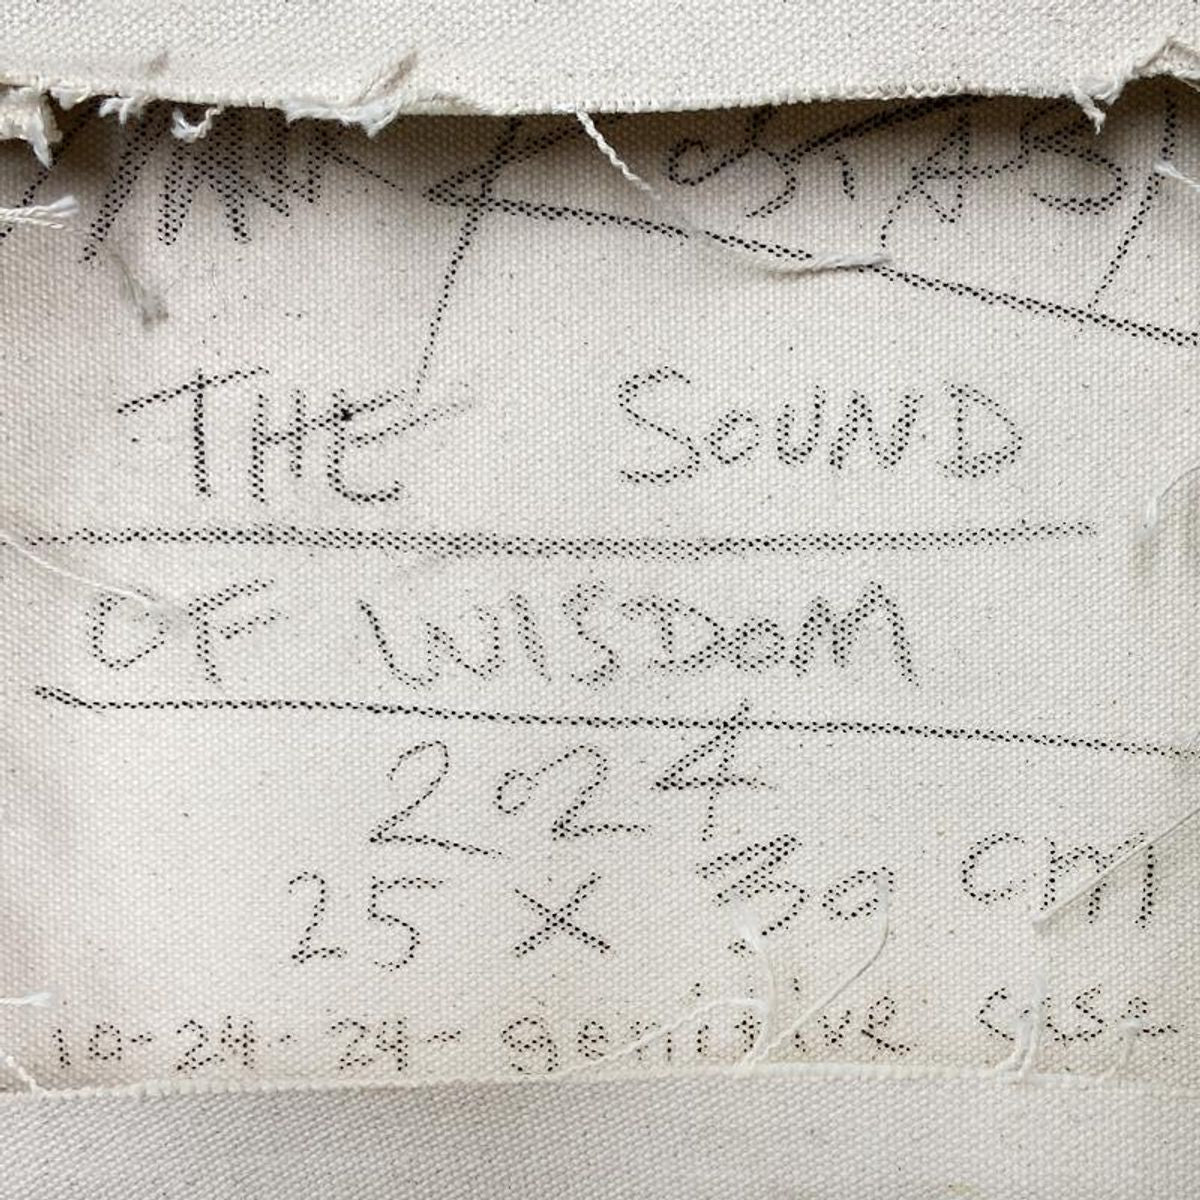 THE SOUND
OF WISDOM
2024
25 X 30 cm
10-24-24-genitive case